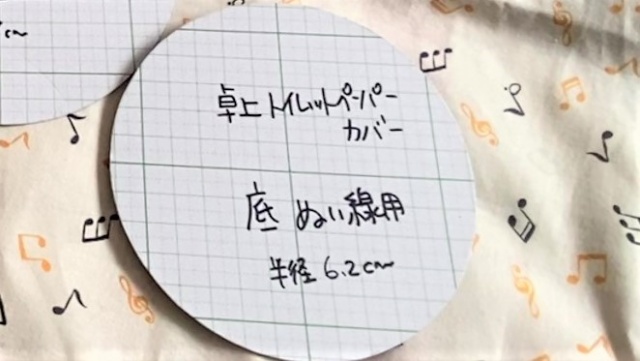 卓上トイレットペーパー
カバー
底 ぬい線用
半径 6.2cm
cm